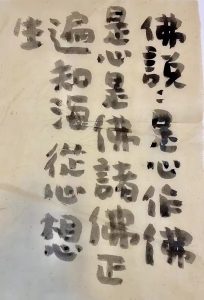 佛說:是心作佛
是心是佛諸佛正
遍知海從心想
生